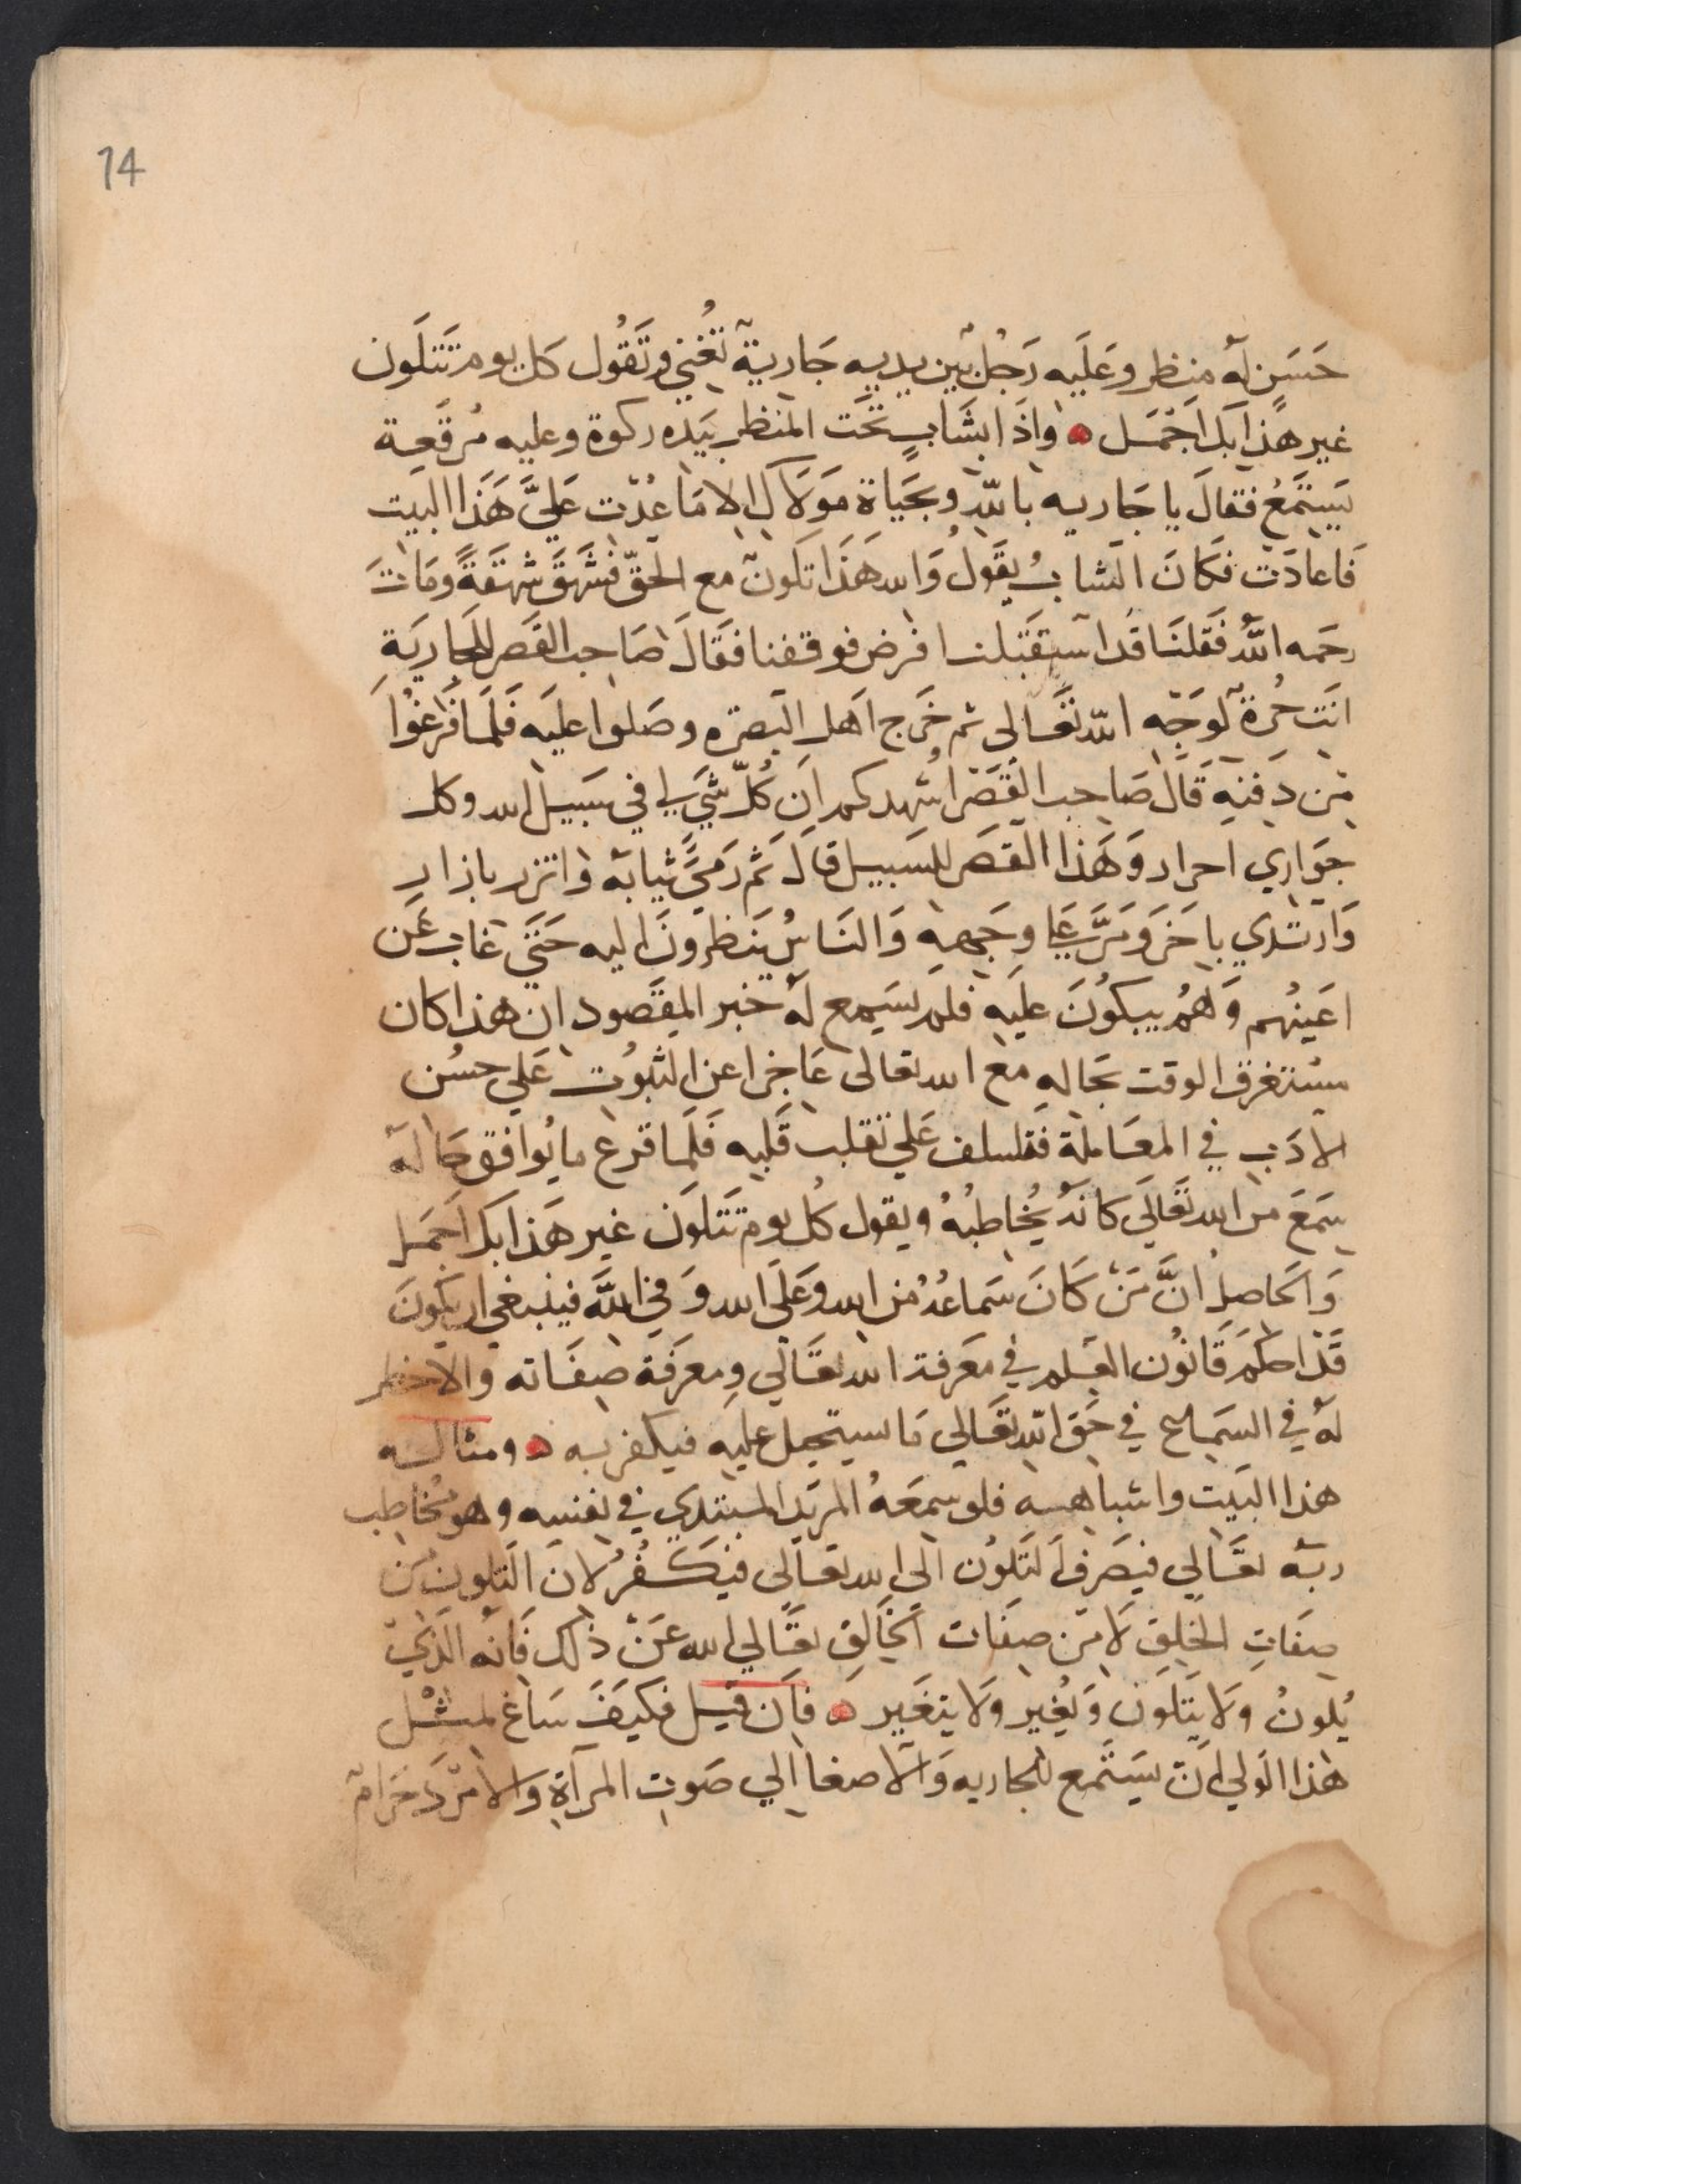 14
حَسَنٍ لَه منظر وعَلَيه رَجُل بَين يديه جَارية تُغني وتَقُول كل يوم تَتَلَون
غير هذا بك اَجْمَل ه واذَا بشَابٍ تحَت المنظر بيَده ركوة وعليه مُرقَعة
يَستمَعُ فقالَ يا جَاريه باللّه وبحَيَاة مَولاك الا مَا عُدْت عَليَّ هَذا البيت
فَاعادَت فكَانَ الشابُ يقَولُ وَالله هَذَا تَلَون مع الحَقّ فشَهَقَ شهقَةً ومَات
رحمَه اللَّهُ فَقلنَا قَد استَقبَلنا فرض فوقفنا فَقَالَ صَاحب القَصر للجَاريَة
انَت حُرة لوَجْه اللّه تَعَالى ثم خَرج اَهل البَصرَه وصَلوا عليَه فَلَما فَرَغُوا
من دَفنِه قَالَ صَاحب القَصَر اُشهدكم اَن كُلّ شَي لي في سَبيل الله وكل
جوَاري احرار وَهَذا القَصر للسَبيل قالَ ثم رَميَ ثيابَه واتزر بازار
وَارتدي باخَر وَمَرَّ عَلي وجَههِ وَالنَاسُ يَنظرونَ اليه حَتيَ غاب عَن
اعَينهُم وَهُم يبكُونَ عليَه فلم يسَمع لَه خبر المقَصود ان هذا كان
مسُتغرق الوقت بحَاله مع الله تعالى عَاجزا عن الثبوُت عَلي حسُن
الادَب في المعَاملة فتلسف عَلي تقلب قَلبه فَلَما قرع ما يُوافق حَالَه
سَمعَ من الله تَعَالي كانهُ يُخاطبُهُ ويقول كُل يوم تَتَلَون غير هَذا بك اَجمَل
وَالحَاصل انَّ مَنْ كَانَ سَماعُهُ مُن الله وَعَلَي الله وَفي اللَّه فينبغي ان يكَونَ
قَدْ احكَم قَانوُن العلم في مَعَرفة الله تعَالي ومعَرفَة صِفَاته والا خطر
لَهُ في السَمَاع في حَق اللّه تعَالي مَا يستحيل عليه فيكفر به ه ومثاله
هذا البَيت واشباهه فلو سَمعَهُ المريَد المبتدي في نفسه وهو مُخاطب
ربَه تعَالي فيصَرف التَلَوُن الي الله تعالى فيَكفُرُ لانَ التلون مَن
صِفَاتِ الخلق لَا من صِفَات الخَالق تعَالي الله عَنْ ذلك فَانَه الذَي
يُلونُ ولَا يَتَلَون وَيُغيِر ولَا يتغَير ه فان قيل فكيَفَ سَاغ لمثْل
هَذا الوَلي اَن يسَتَمع للجاريه وَالاصغا الي صَوت المرآة وَالامَرد حَرَام